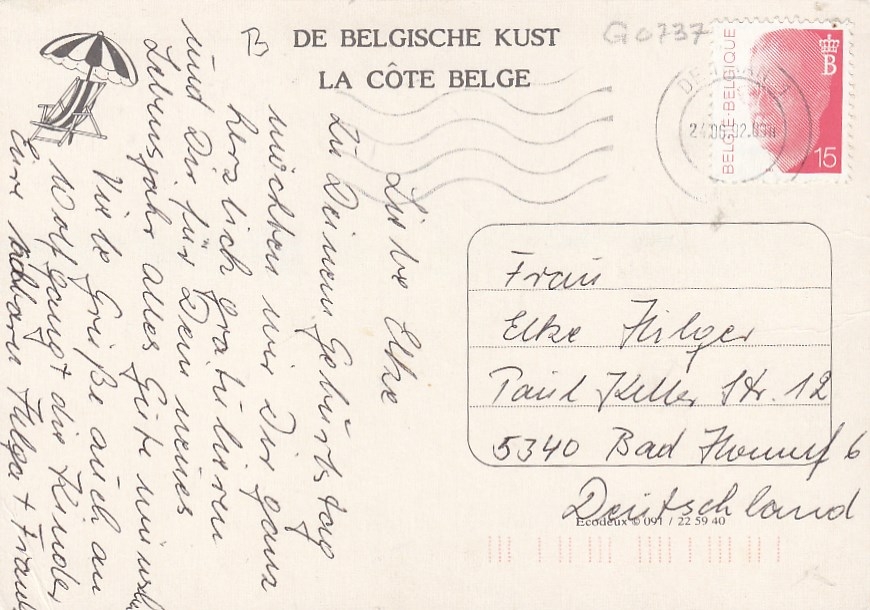 DE BELGISCHE KUST
LA CÔTE BELGE
B
G0737
BELGIË-BELGIQUE
B
15
Liebe Elke
Zu Deinem Geburtstag
möchten wir Dir ganz
herzlich gratulieren
und Dir für Dein neues
Lebensjahr alles Gute wünschen
Viele Grüße auch an
Wolfgang + die Kinder
Eure Helga + Frank
Frau
Elke Hilger
Paul Keller Str. 12
5340 Bad Honnef 6
Deutschland
Ecodeux © 091 / 22 59 40